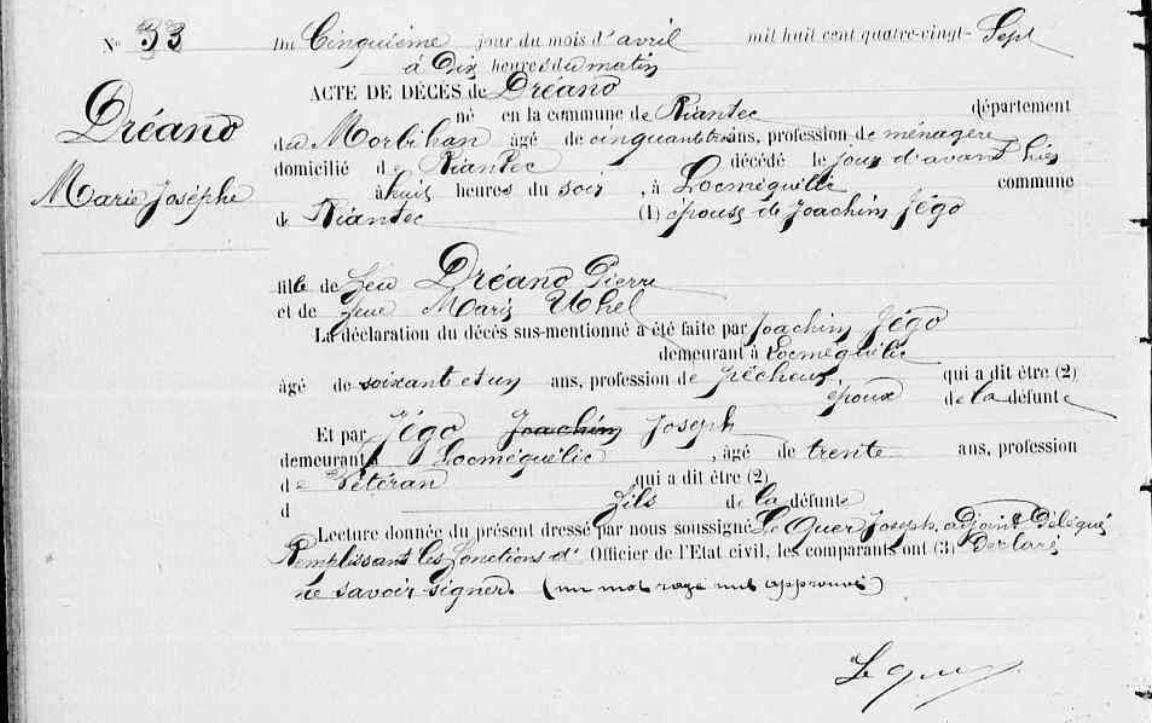 N° 33
Du Cinquième jour du mois d'avril mil huit cent quatre-vingt- Sept
à Dix heures du matin
ACTE DE DÉCÈS de Dréano
Dréano
Marie Josèphe
né en la commune de Riantec département
du Morbihan âgé de cinquant trois ans, profession de ménagère
domicilié de Riantec décédé le jour d'avant hier
à huit heures du soir, à Locméquélic commune
de Riantec (1) épouse de Joachim Jégo
fille de feu Dréano Pierre
et de feue Marie Uhel
La déclaration du décès sus-mentionné a été faite par Joachim Jégo
demeurant à Locméquélic
âgé de soixante et un ans, profession de pêcheur, qui a dit être (2)
époux de la défunte
Et par Jégo Joachim Joseph
demeurant à Locméquélic, âgé de trente ans, profession
de Vétéran qui a dit être (2)
d fils de la défunte
Lecture donnée du présent dressé par nous soussigné Le Quer Joseph, adjoint Délégué
Remplissant les fonctions d' Officier de l'Etat civil, les comparants ont (3) Déclaré
ne savoir signer. (un mot rayé nul approuvé)
Le Quer